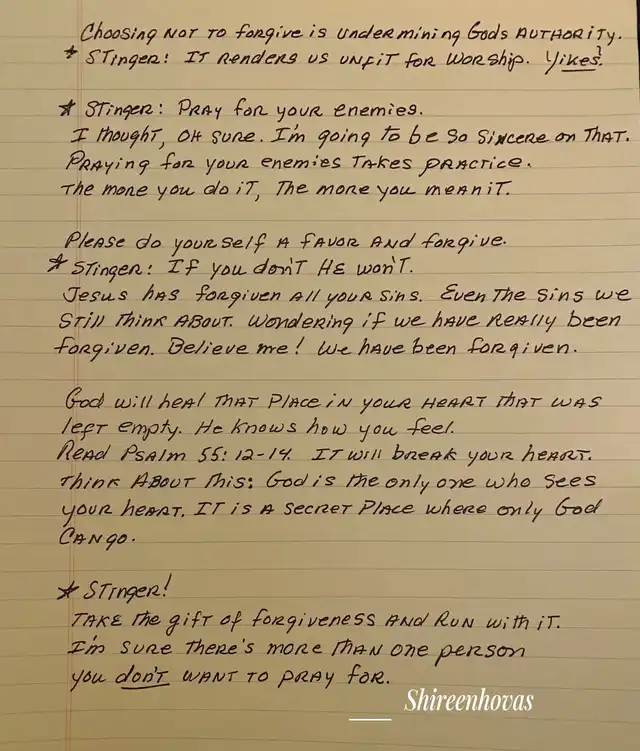 Choosing NOT to forgive is undermining Gods AUTHORITY.
* STinger! IT Renders us unfit for worship. Yikes!
* STinger: PRAY for your enemies.
I thought, OH sure. I'm going to be so sincere on THAT.
PRAying for your enemies TAKes PRActice.
The more you do iT, The more you meAn iT.
PleAse do yourself A fAvoR And forgive.
* STinger: If you don'T He won'T.
Jesus HAs forgiven All your sins. Even The sins we
STill Think About. Wondering if we have ReAlly been
forgiven. Believe me! We have been forgiven.
God will heAl THAT PlAce in your HeArT THAT wAs
left empty. He knows how you feel.
ReAd PsAlm 55:12-14. IT will breAk your heArT.
Think About This: God is the only one who sees
your heArT. IT is A secreT PlAce where only God
CAn go.
* STinger!
TAKe the gifT of forgiveness And Run with iT.
I'm sure There's more THAn one person
you don'T wAnT To pRAy for.
Shireenhovas